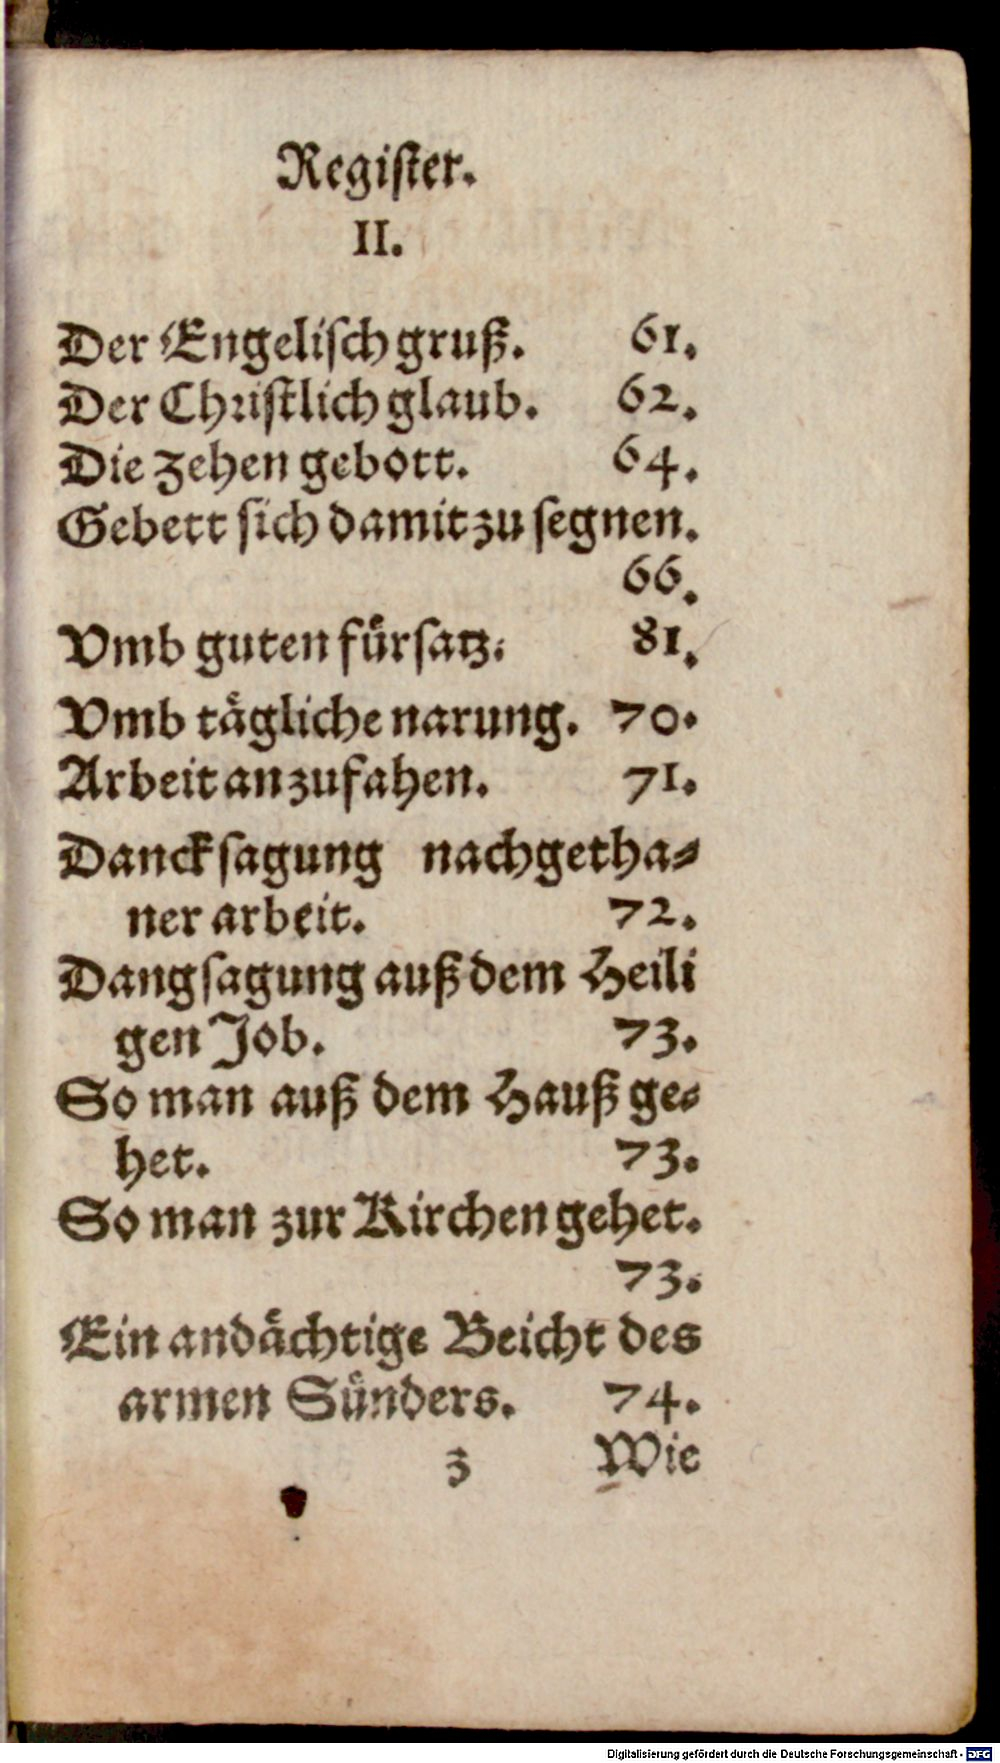 Register.
II.
Der Engelisch gruß. 61.
Der Christlich glaub. 62.
Die zehen gebott. 64.
Gebett sich damit zu segnen.
66.
Vmb guten fürsatz. 81.
Vmb tägliche narung. 70.
Arbeit anzufahen. 71.
Dancksagung nachgetha-
ner arbeit. 72.
Dangsagung auß dem Heili
gen Job. 73.
So man auß dem Hauß ge-
het. 73.
So man zur Kirchen gehet.
73.
Ein andächtige Beicht des
armen Sünders. 74.
z Wie
Digitalisierung gefördert durch die Deutsche Forschungsgemeinschaft - DFG